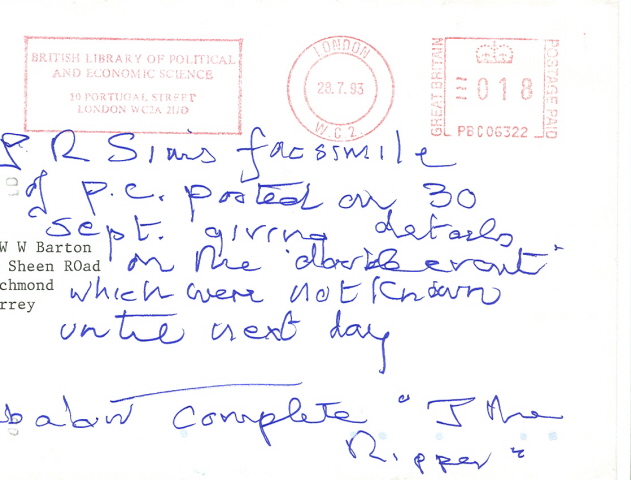 BRITISH LIBRARY OF POLITICAL
AND ECONOMIC SCIENCE
10 PORTUGAL STREET
LONDON WC2A 2HD
LONDON
28.7.93
W.C.2.
GREAT BRITAIN
018
POSTAGE PAID
PBC06322
R Sims facsimile
of p.c. posted on 30
Sept. giving details
on the "double event"
which were not known
until next day
W W Barton
Sheen ROad
chmond
rrey
complete "J the
Ripper"